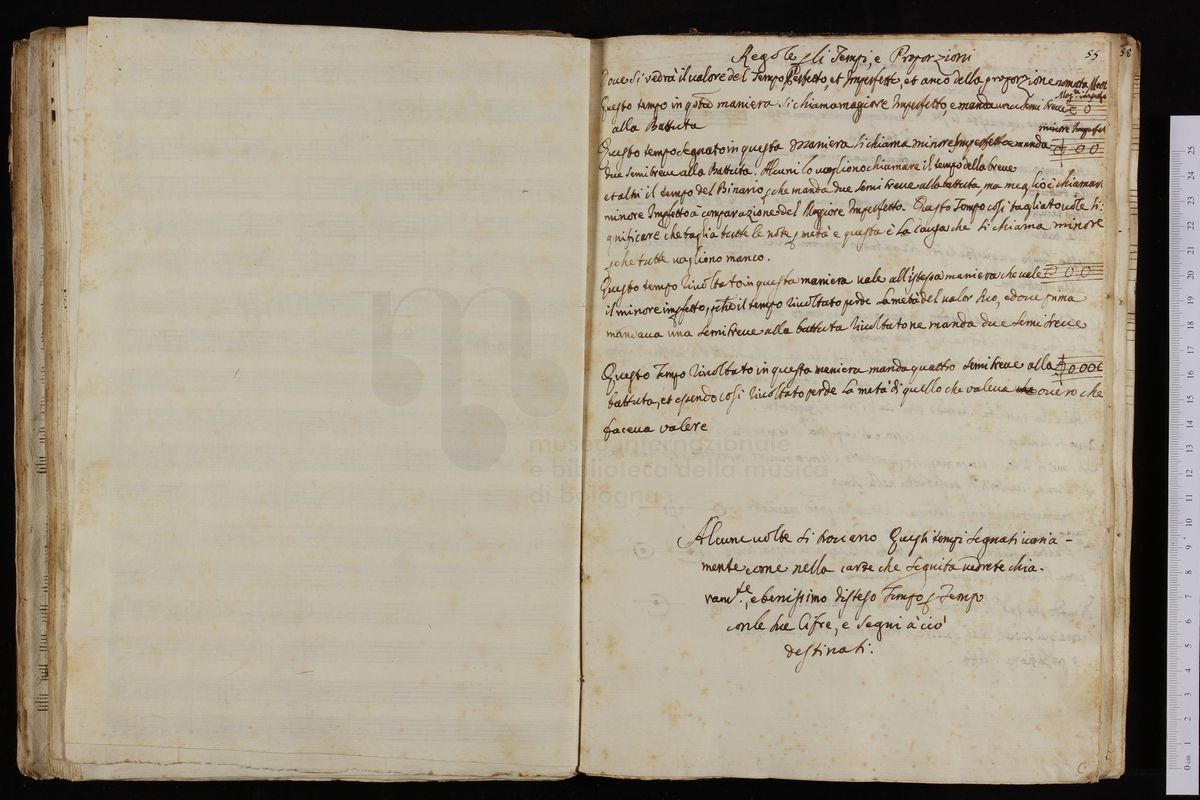 Regole p li Tempi, e Proporzioni
55
58
Dove si vedrà il valore del Tempo Perfetto, et Imperfetto, et anco della proporzione nomata
Questo tempo in qsta maniera si chiama maggiore Imperfetto, e manda una semi breve
alla Battuta
minore Imperfet
Questo tempo segnato in questa maniera si chiama minore Imperfetto e manda
due semibreve alla Battuta. Alcuni lo vogliono chiamare il tempo della breve
et altri il tempo del Binario, p che manda due semi breve alla battuta, ma meglio è chiamar
minore Impfetto à comparazione del Maggiore Imperfetto. Questo Tempo così tagliato vole si
gnificare che taglia tutte le note p metà e questa è la causa che si chiama minore
p che tutte vagliono manco.
Questo tempo rivoltato in questa maniera vale all'istessa maniera che vale
il minore impfetto, pche il tempo rivoltato perde la metà del valor suo, e dove prima
mandava una semibreve alla battuta rivoltato ne manda due semibreve
Questo Tempo rivoltato in questa maniera manda quattro semibreve alla
battuta, et essendo così rivoltato perde la metà di quello che valeva che overo che
faceva valere
museo internazionale
e biblioteca della musica
di bologna
Alcune volte si trovano Questi tempi segnati varia-
mente come nella carta che seguita vedrete chia-
ramte., e benissimo disteso Tempo p Tempo
con le sue Cifre, e segni à ciò
destinati.
0 cm 1 2 3 4 5 6 7 8 9 10 11 12 13 14 15 16 17 18 19 20 21 22 23 24 25